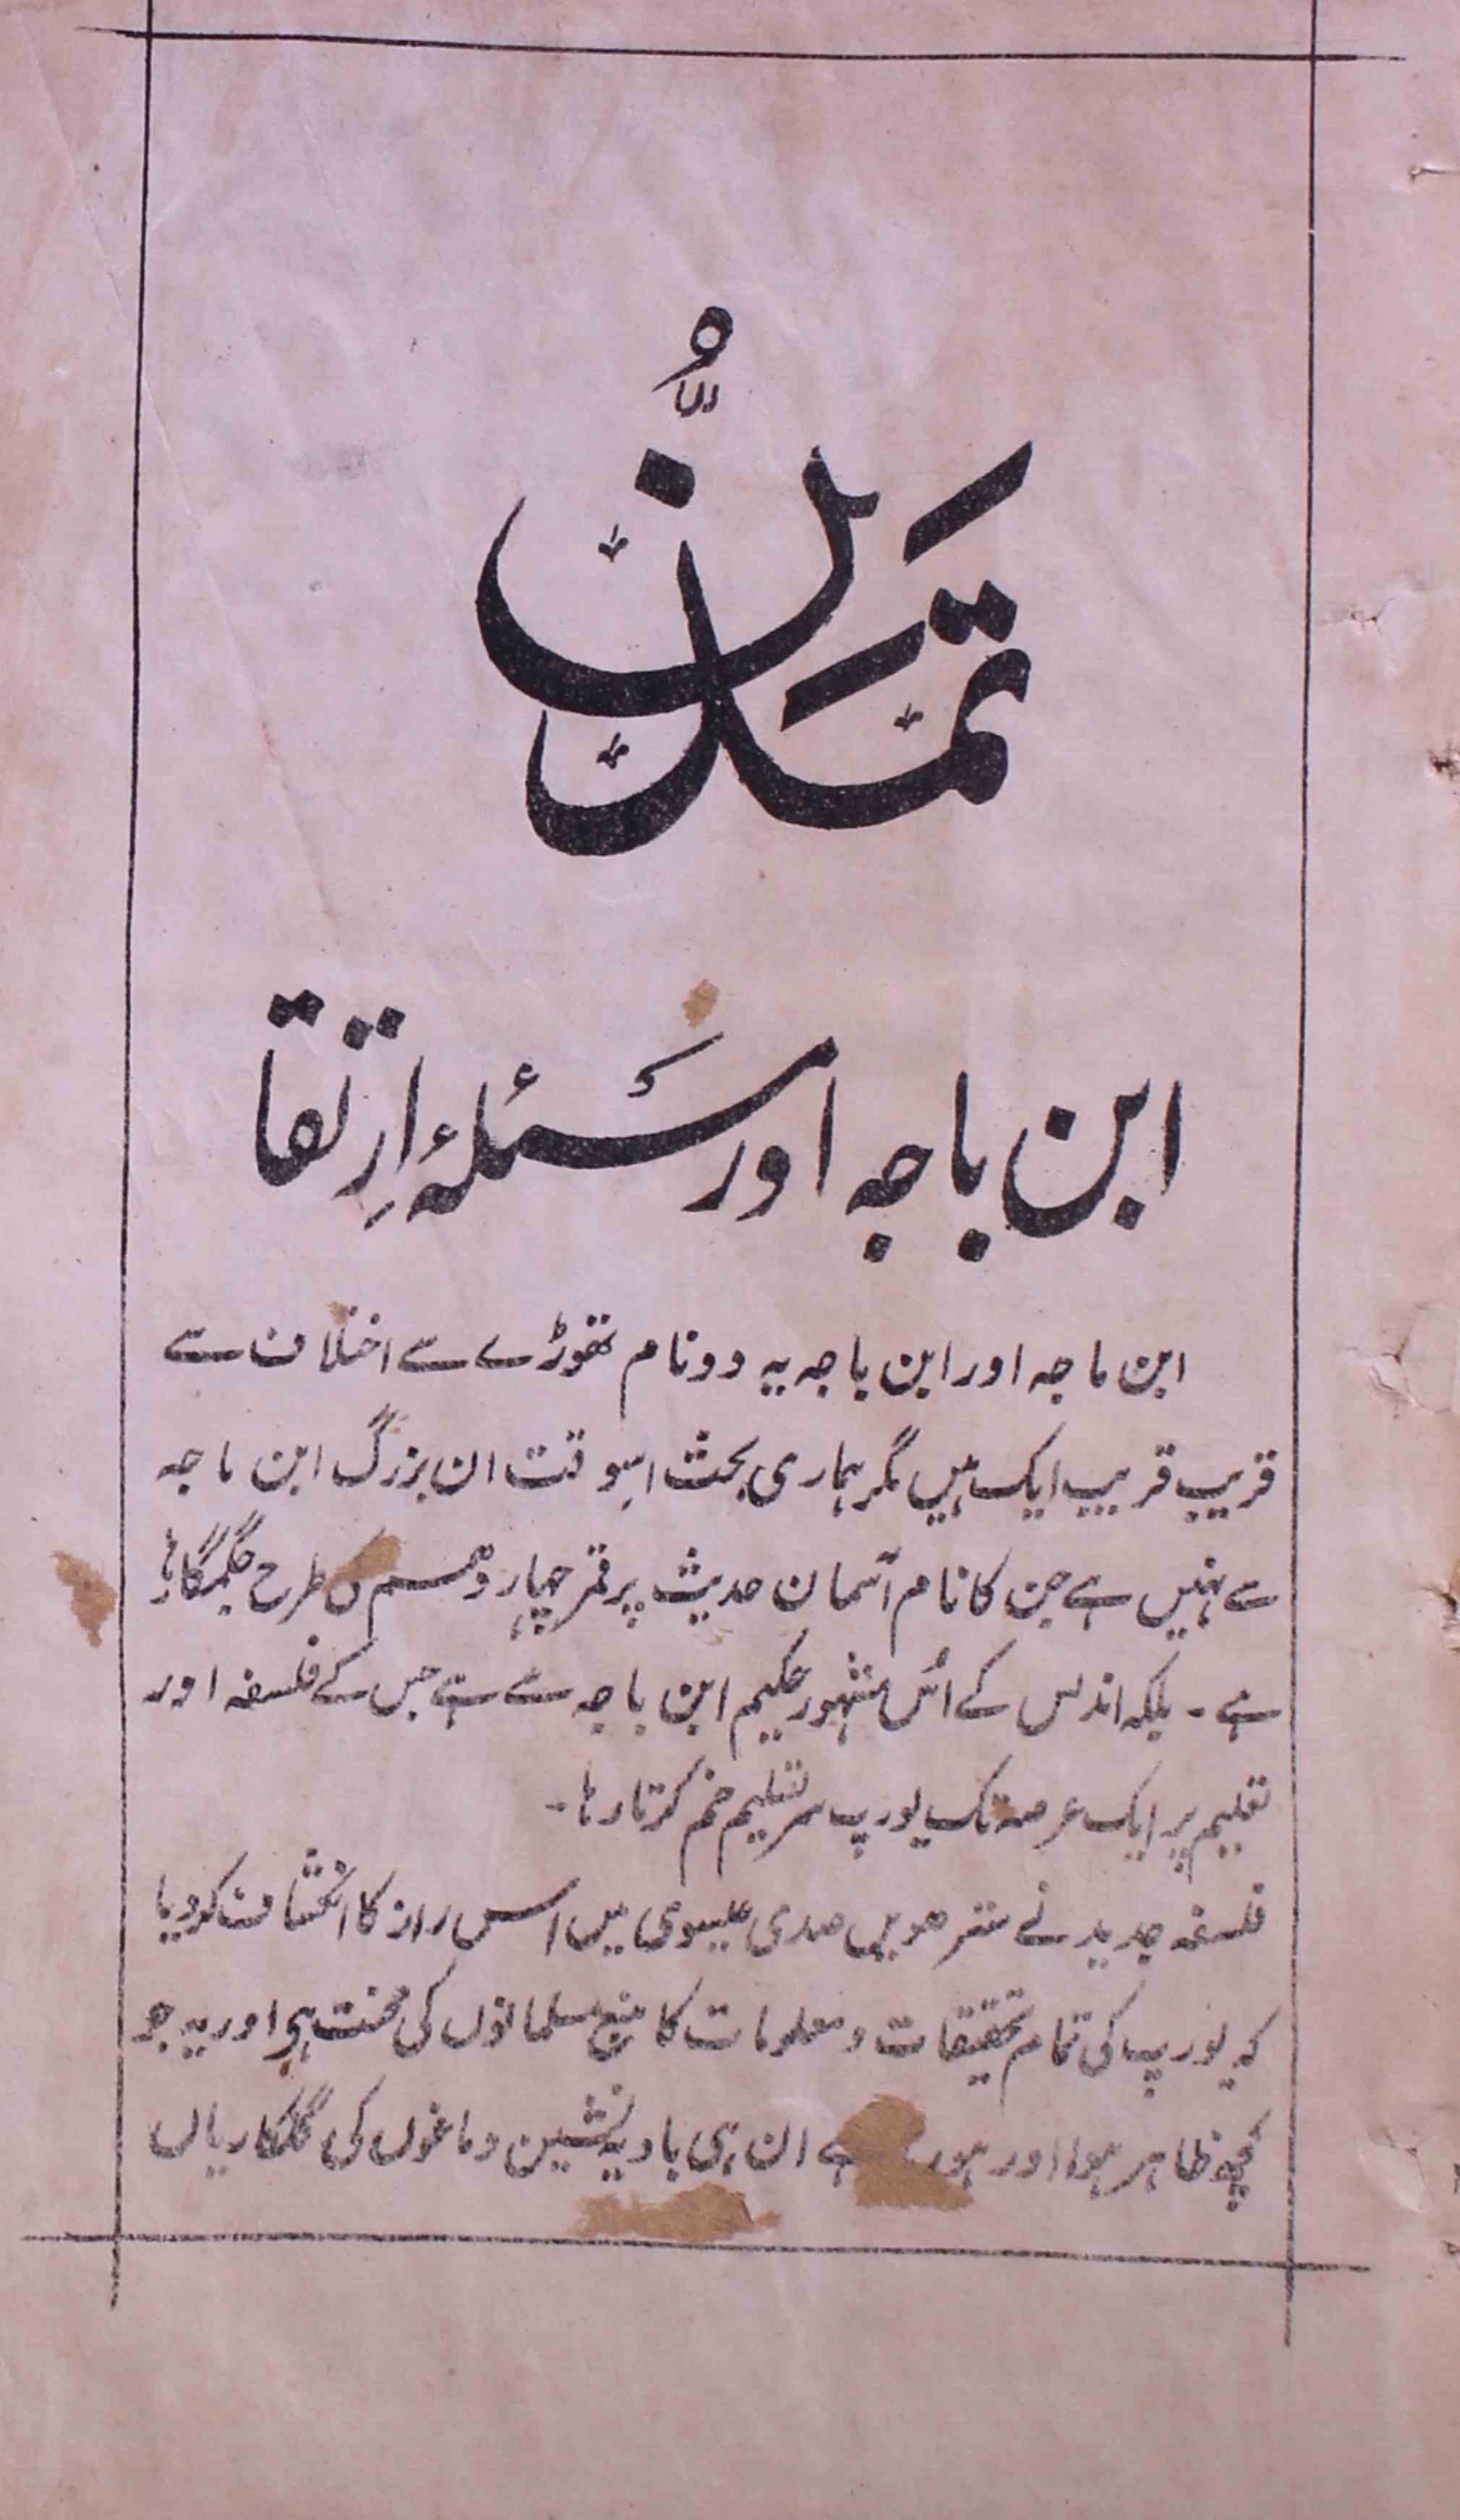 تمدن
ابن باجہ اور مسئلۂ ارتقا
ابن ماجہ اور ابن باجہ یہ دو نام تھوڑے سے اختلاف سے
قریب قریب ایک ہیں مگر ہماری بحث اسوقت ان بزرگ ابن ماجہ
سے نہیں ہے جن کا نام آسمان حدیث پر قمر چہاردہم کی طرح جگمگا رہا
ہے ۔ بلکہ اندلس کے اُس مشہور حکیم ابن باجہ سے ہے جس کے فلسفہ اور
تعلیم پر ایک عرصہ تک یورپ سر تسلیم خم کرتا رہا ۔
فلسفہ جدید نے سترھویں صدی عیسوی میں اس راز کا انکشاف کردیا
کہ یورپ کی تمام تحقیقات و معلومات کا منبع مسلمانوں کی محنت ہے اور یہ جو
کچھ ظاہر ہوا اور ہو ہے ان ہی بادیہ نشین دماغوں کی گلکاریاں